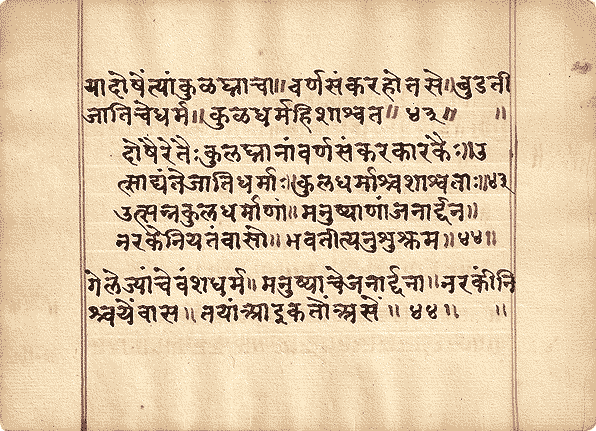 यादोषेंत्यांकुळघ्नाचा॥वर्णसंकरहोतसे॥बुडती
जातिचेधर्म॥कुळधर्महिशाश्वत॥४३॥ ॥
दोषैरेतैःकुलघ्नानांवर्णसंकरकारकैः॥उ
त्साद्यंतेजातिधर्माः॥कुलधर्माश्चशाश्वताः॥४३
उत्सन्नकुलधर्माणां॥मनुष्याणांजनार्द्दन॥
नरकेनियतंवासो॥भवतीत्यनुशुश्रुम॥४४॥
गेलेज्यांचेवंशधर्म॥मनुष्याचेजनार्द्दना॥नरकींनि
श्चयेंवास॥तयांआइकतोंअसें॥४४॥ ॥